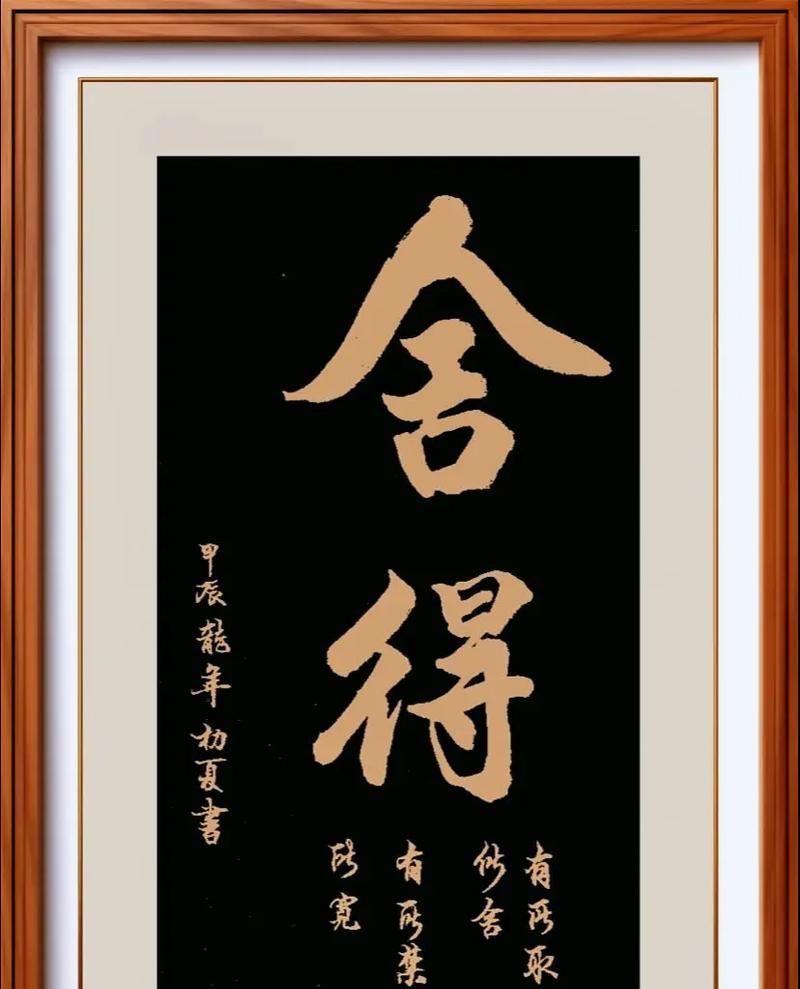 舍得
有所取
舍
有所
寬
甲辰龍年初夏書